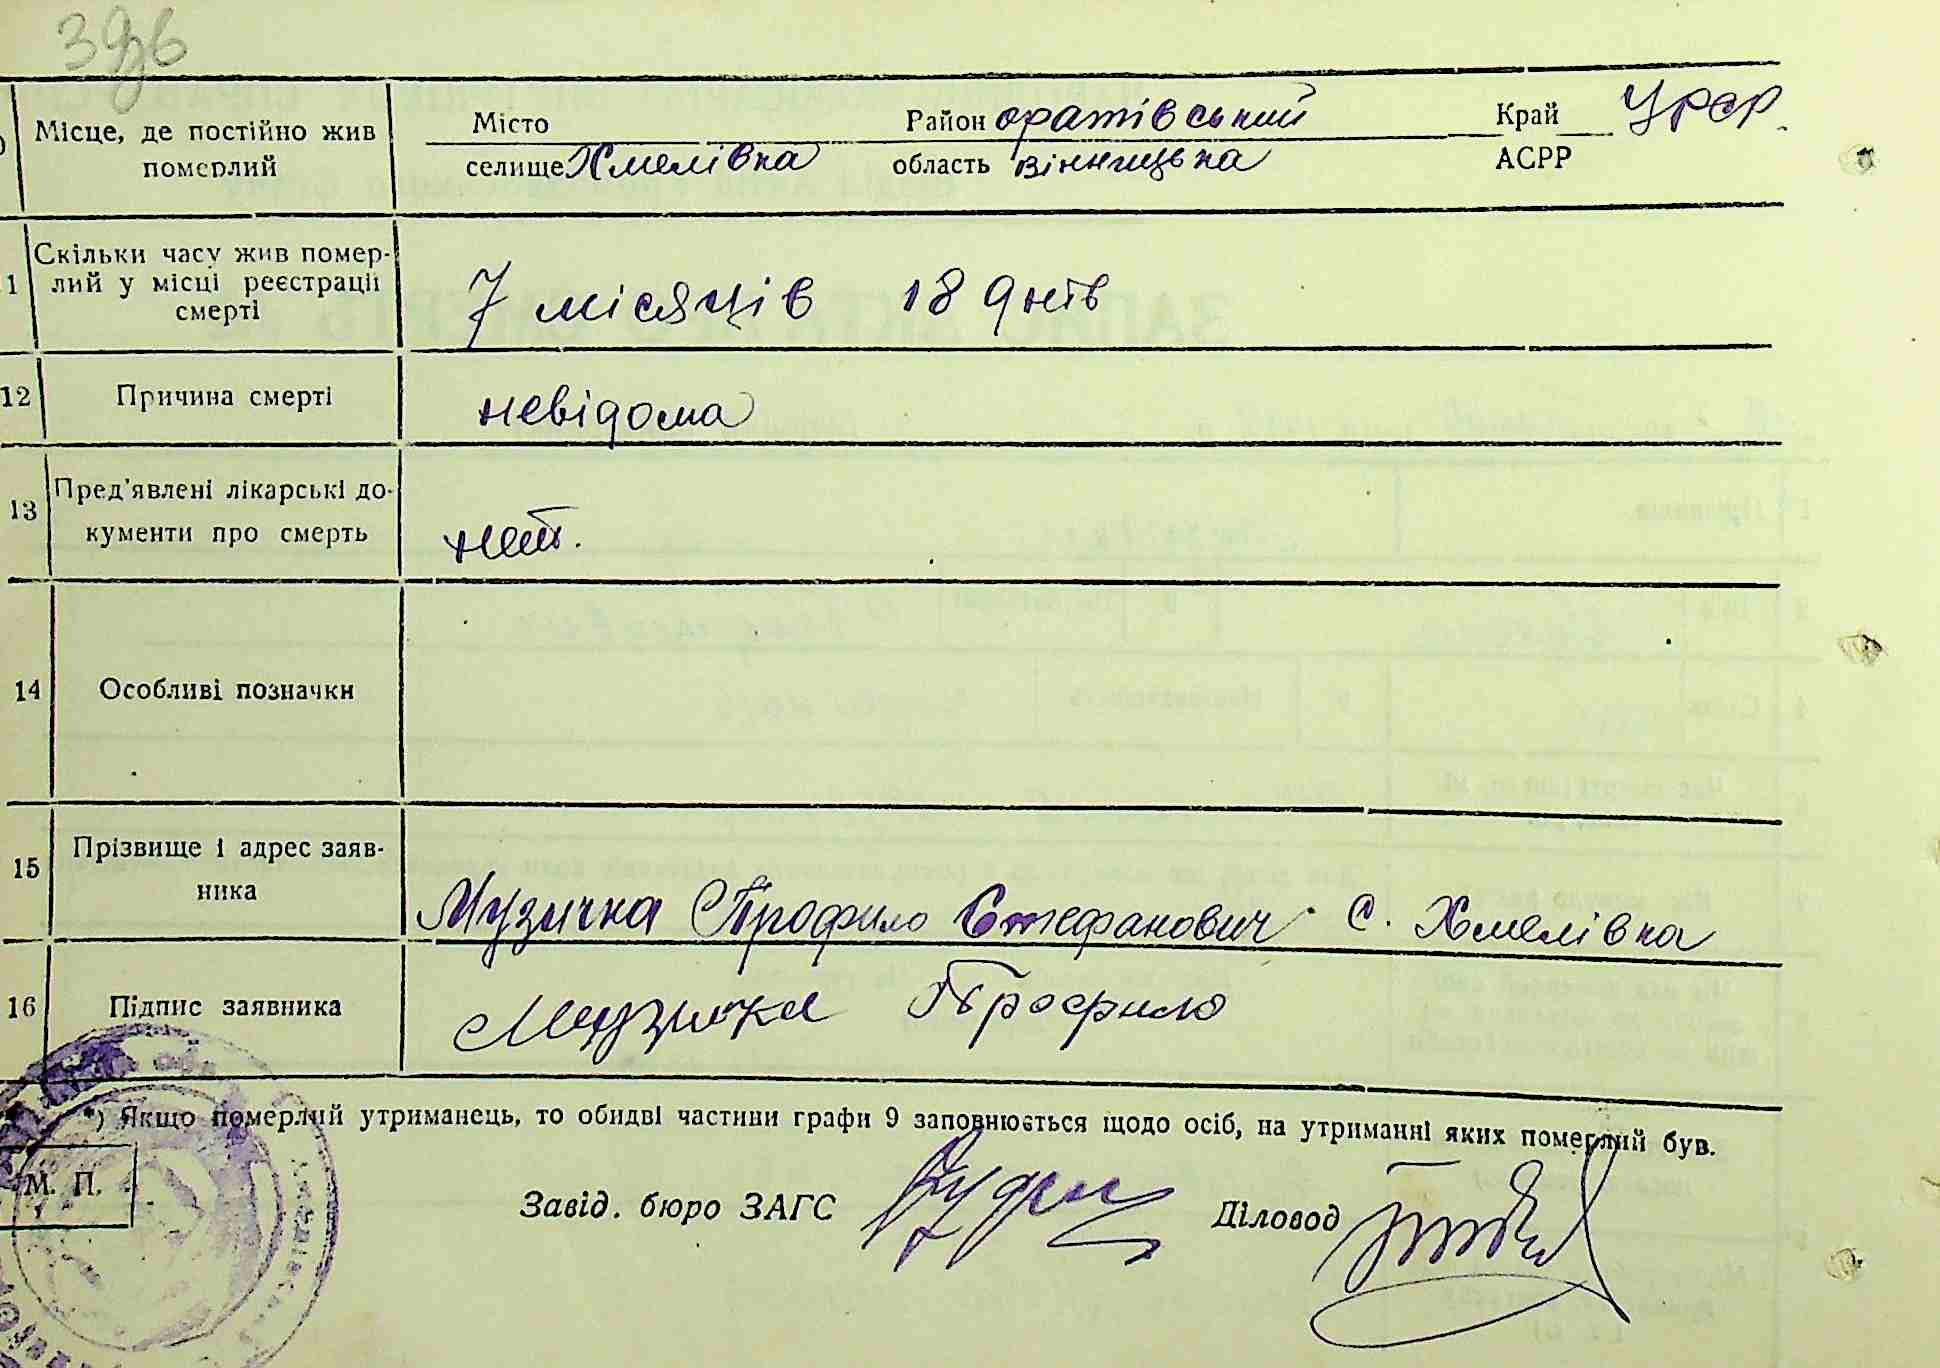 Місце, де постійно жив
померлий
Місто Район оратівський Край УРСР.
селище Хмелівка область вінницька АСРР
1 Скільки часу жив помер-
лий у місці реєстрації
смерті
7 місяців 18 днів
12 Причина смерті невідома
13 Пред'явлені лікарські до-
кументи про смерть
нет.
14 Особливі позначки
15 Прізвище і адрес заяв-
ника
Музичка Трофило Стефанович с. Хмелівка
16 Підпис заявника Музичка Трофило
*) Якщо померлий утриманець, то обидві частини графи 9 заповнюється щодо осіб, на утриманні яких померлий був.
М. П.
Завід. бюро ЗАГС Діловод